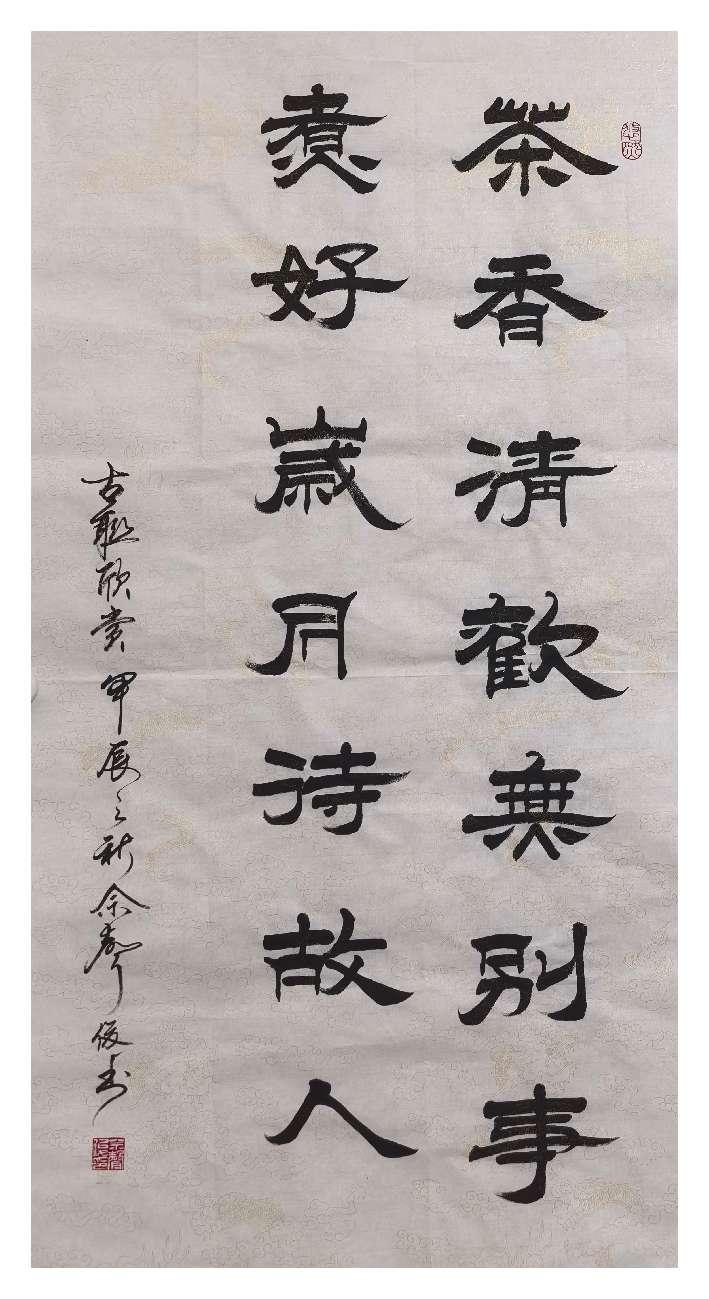 茶香清歡無別事
煮好歲月待故人
古聯欣賞甲辰之秋余聲俊书